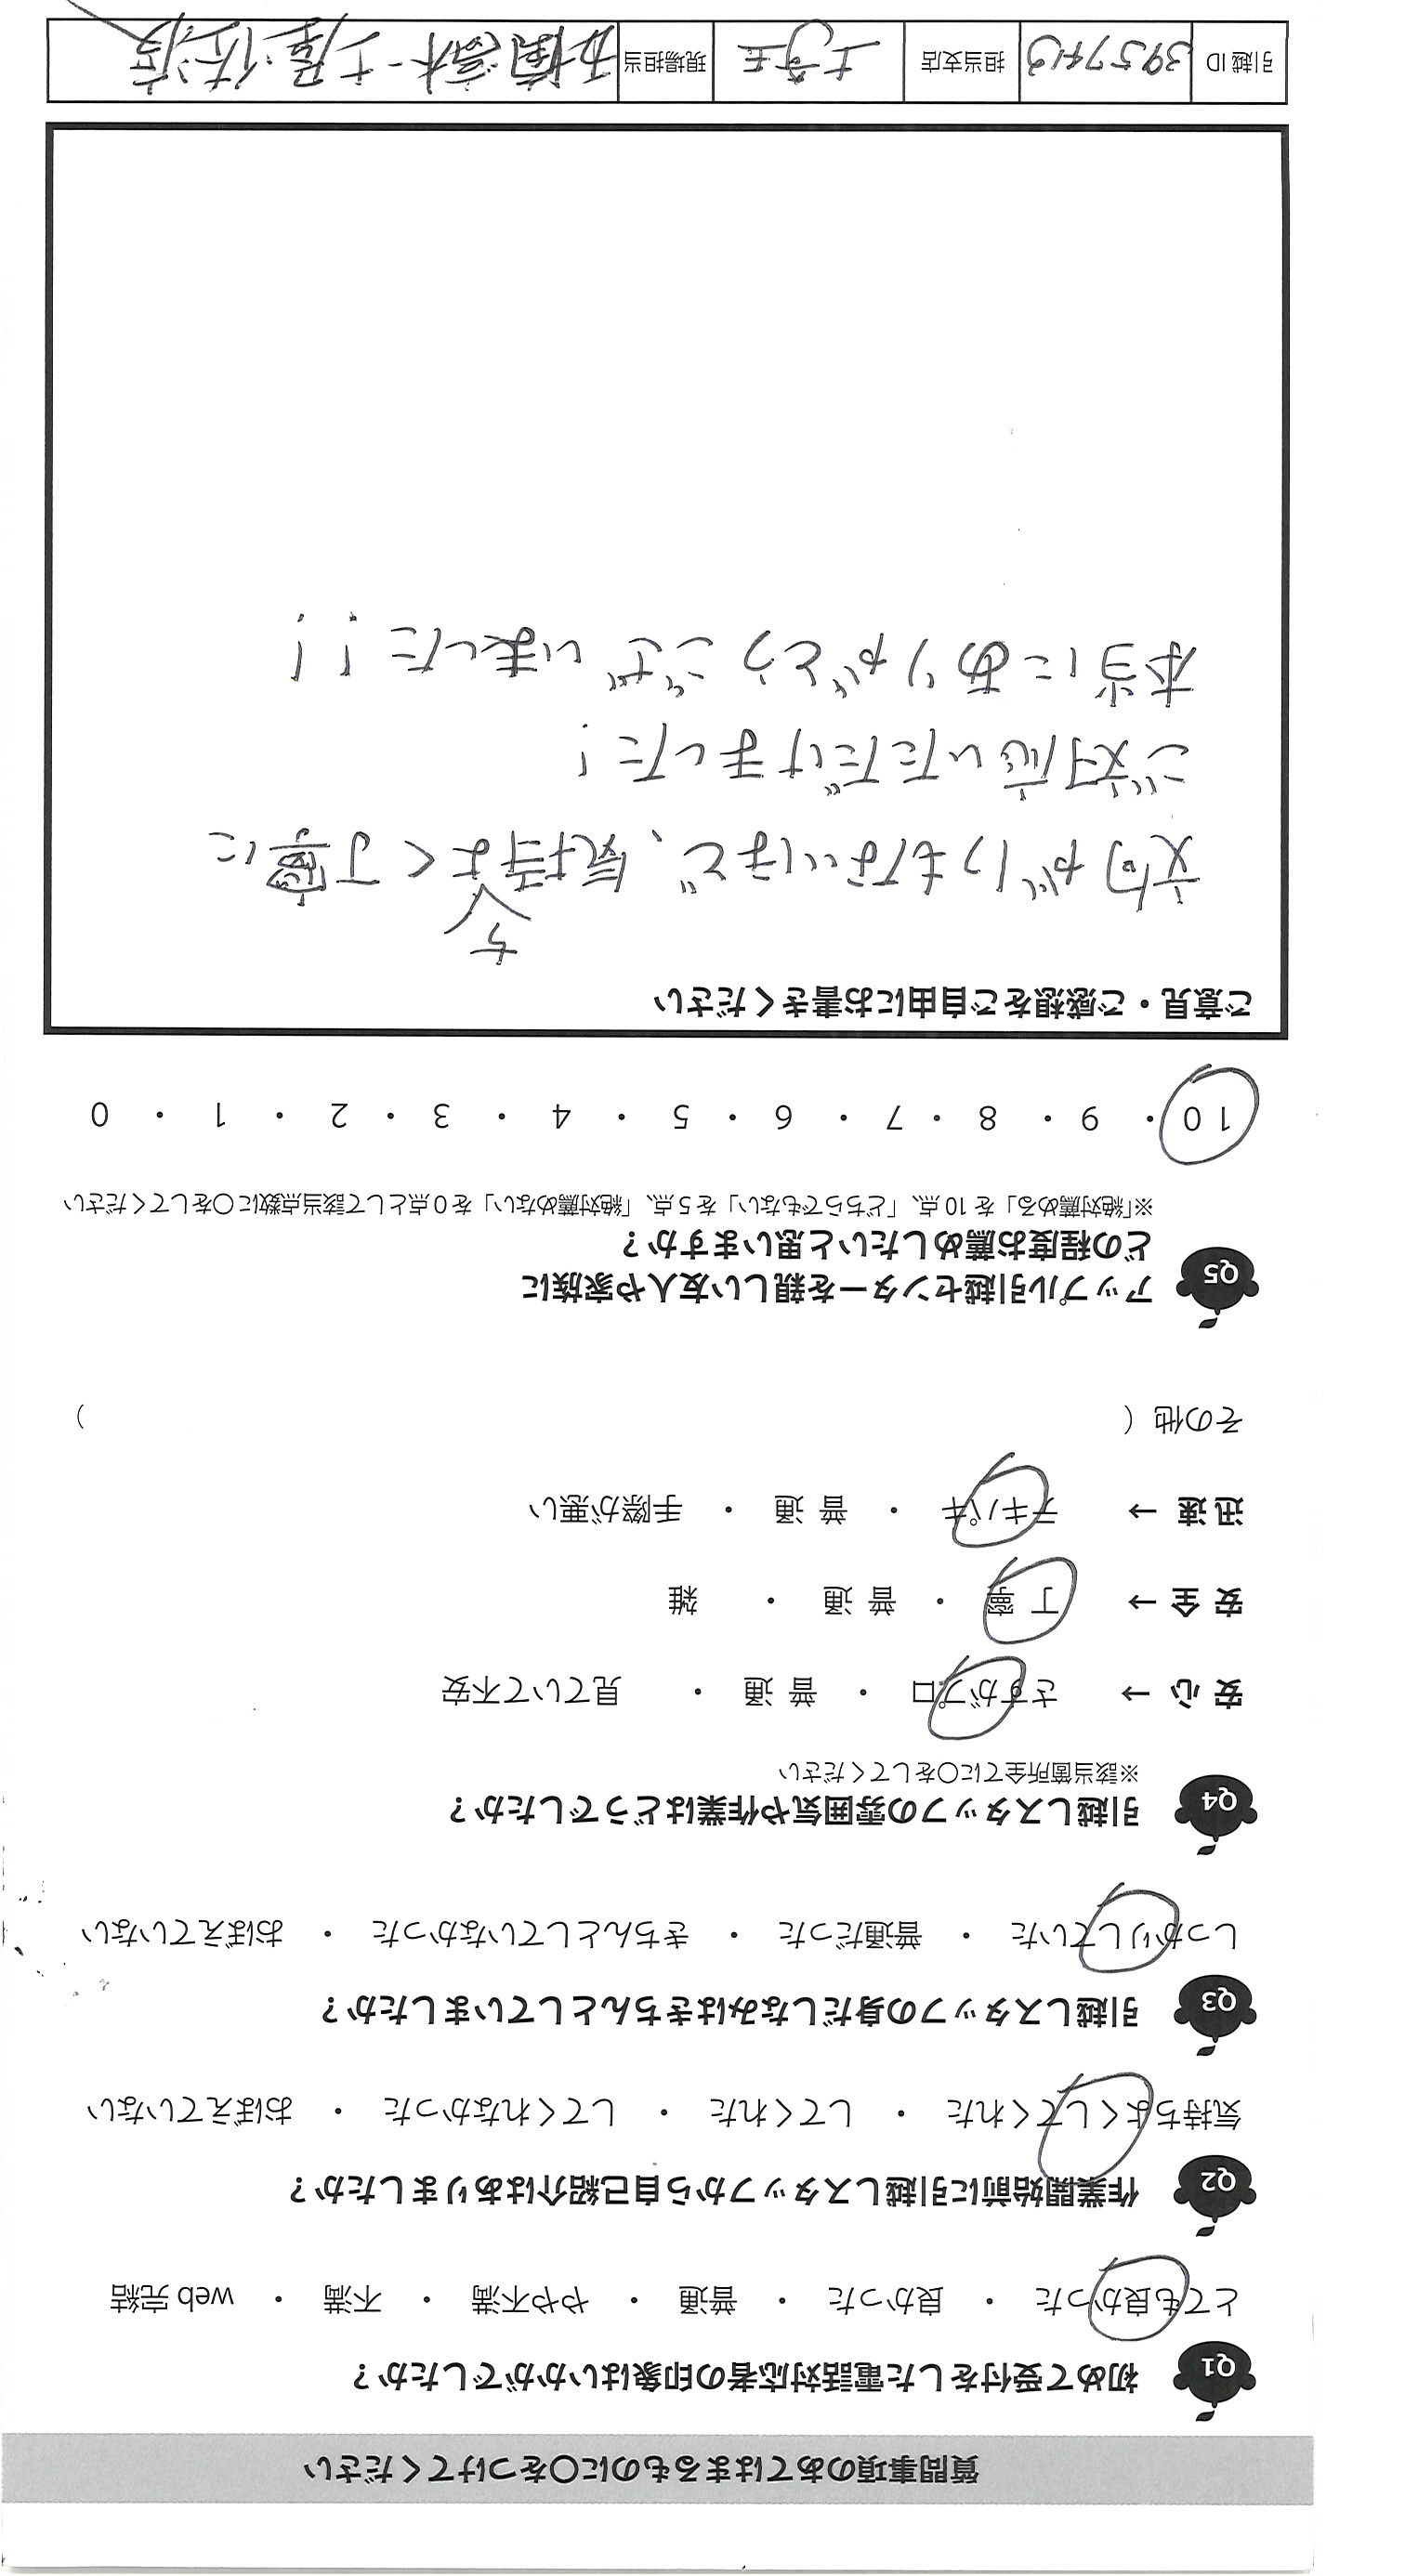 質問事項のあてはまるものに〇をつけてください
Q1 初めて受付をした電話対応者の印象はいかがでしたか？
とても良かった ・ 良かった ・ 普通 ・ やや不満 ・ 不満 ・ web 完結
Q2 作業開始前に引越しスタッフから自己紹介はありましたか？
気持ちよくしてくれた ・ してくれた ・ してくれなかった ・ おぼえていない
Q3 引越しスタッフの身だしなみはきちんとしていましたか？
しっかりしていた ・ 普通だった ・ きちんとしていなかった ・ おぼえていない
Q4 引越しスタッフの雰囲気や作業はどうでしたか？
※該当箇所全てに〇をしてください
安 心 → さすがプロ ・ 普 通 ・ 見ていて不安
安 全 → 丁 寧 ・ 普 通 ・ 雑
迅 速 → テキパキ ・ 普 通 ・ 手際が悪い
その他（ ）
Q5 アップル引越センターを親しい友人や家族に
どの程度お薦めしたいと思いますか？
※「絶対薦める」を 10 点、「どちらでもない」を 5 点、「絶対薦めない」を 0 点として該当点数に〇をしてください
10 ・ 9 ・ 8 ・ 7 ・ 6 ・ 5 ・ 4 ・ 3 ・ 2 ・ 1 ・ 0
ご意見・ご感想をご自由にお書きください
文句が1つもないほど、気持ちよく丁寧に
ご対応いただけました！
本当にありがとうございました！！
引越 ID 担当支店 現場担当 高木・土屋・佐渡